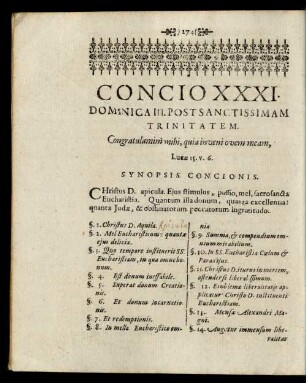 274
CONCIO XXXI.
DOMINICA III. POST SANCTISSIMAM
TRINITATEM.
Congratulamini mihi, quia inveni ovem meam,
Lucæ 15. v. 6.
SYNOPSIS CONCIONIS.
CHristus D. apicula. Ejus stimulus, passio, mel, sacrosancta
Eucharistia. Quantum illa donum, quanta excellentia!
quanta Judæ, & obstinatorum peccatorum ingratitudo.
§. 1. Christus D. Aquila. Apicula
§. 2. Mel Eucharisticum: quanta
ejus delicia.
§. 3. Quo tempore instituerit SS.
Eucharistiam, in qua omne bo-
num.
§. 4. Est donum ineffabile.
§. 5. Superat donum Creatio-
nis.
§. 6. Et donum Incarnatio-
nis.
§. 7. Et redemptionis.
§. 8. In melle Eucharistico om-
nia
§. 9. Summa, & compendium om-
nium mirabilium.
§. 10. In SS. Eucharistia Cœlum &
Paradisus.
§. 11. Christus D. iturus in mortem,
ostendere se liberalissimum.
§. 12. Emblema liberalitatis ap-
plicatur Christo D. instituenti
Eucharistiam.
§. 13. Mensa Alexandri Ma-
gni.
§. 14. Augetur immensum libe-
ralitat